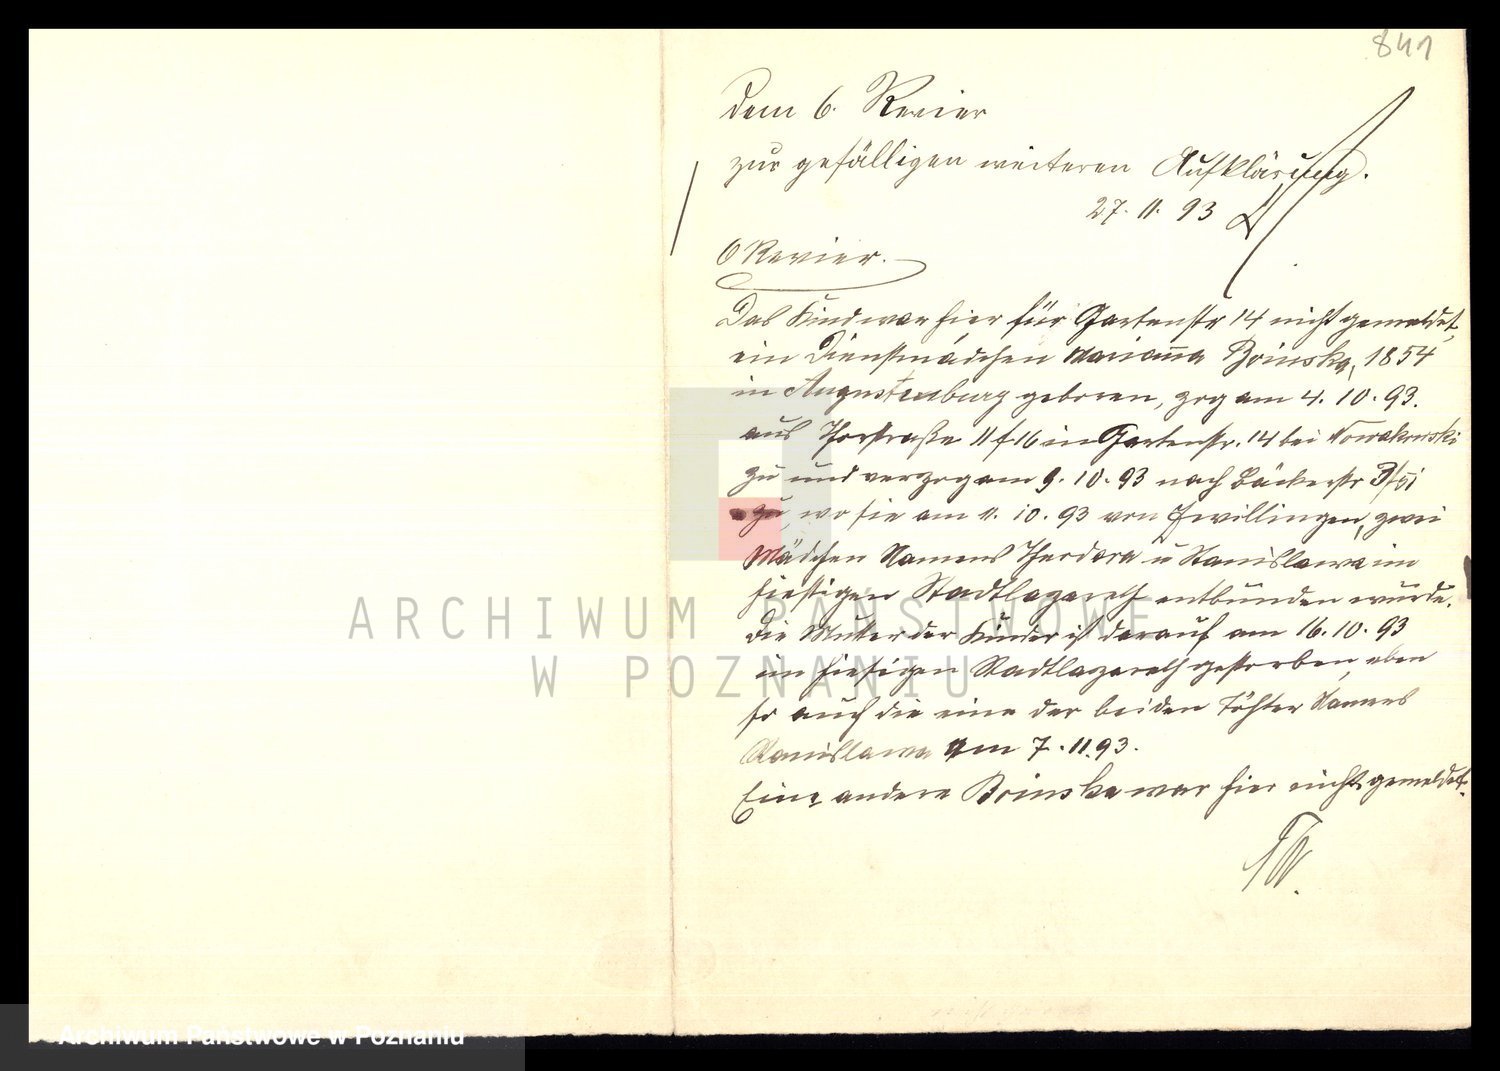 841
Dem 6. Revier
zur gefälligen weiteren Aufklärung.
27. 11. 93
6 Revier.
Das Kind war hier für Gartenstr 14 nicht gemeldet,
ein Dienstmädchen Marianna Brinska, 1854
in Augustenburg geboren, zog am 4. 10. 93.
aus Thorstraße 11 in Gartenstr. 14 bei Nowakowski
zu und verzog am 9. 10. 93 nach Bäckerstr
zu, wo sie am 11. 10. 93 von Zwillingen, zwei
Mädchen Namens Theodora u Stanislawa im
hiesigen Stadtlazareth entbunden wurde.
Die Mutter der Kinder ist darauf am 16. 10. 93
im hiesigen Stadtlazareth gestorben, eben
so auch die eine der beiden Töchter Namens
Stanislawa am 7. 11. 93.
Eine andere Brinska war hier nicht gemeldet.
ARCHIWUM PAŃSTWOWE
W POZNANIU
Archiwum Państwowe w Poznaniu